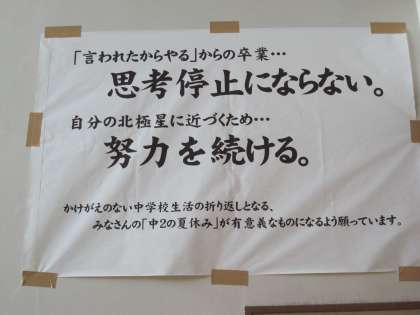 「言われたからやる」からの卒業…
思考停止にならない。
自分の北極星に近づくため…
努力を続ける。
かけがえのない中学校生活の折り返しとなる、
みなさんの「中2の夏休み」が有意義なものになるよう願っています。